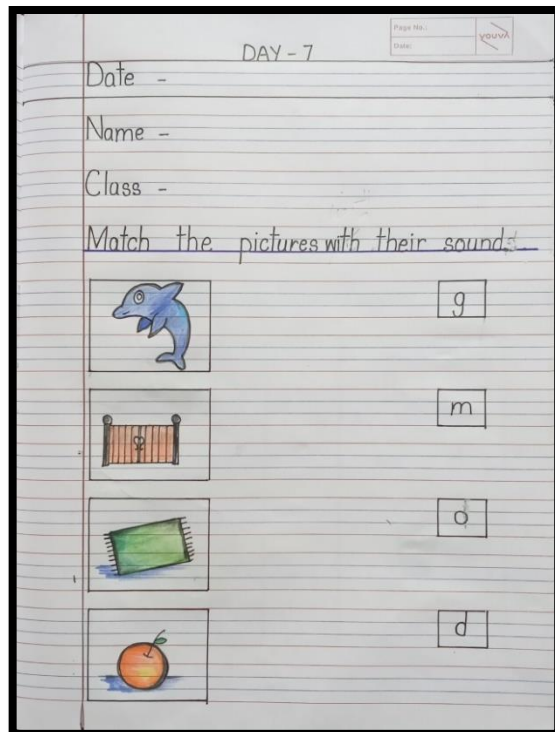 Page No.:
Date:
youva
DAY - 7
Date -
Name -
Class -
Match the pictures with their sound.
g
m
o
d